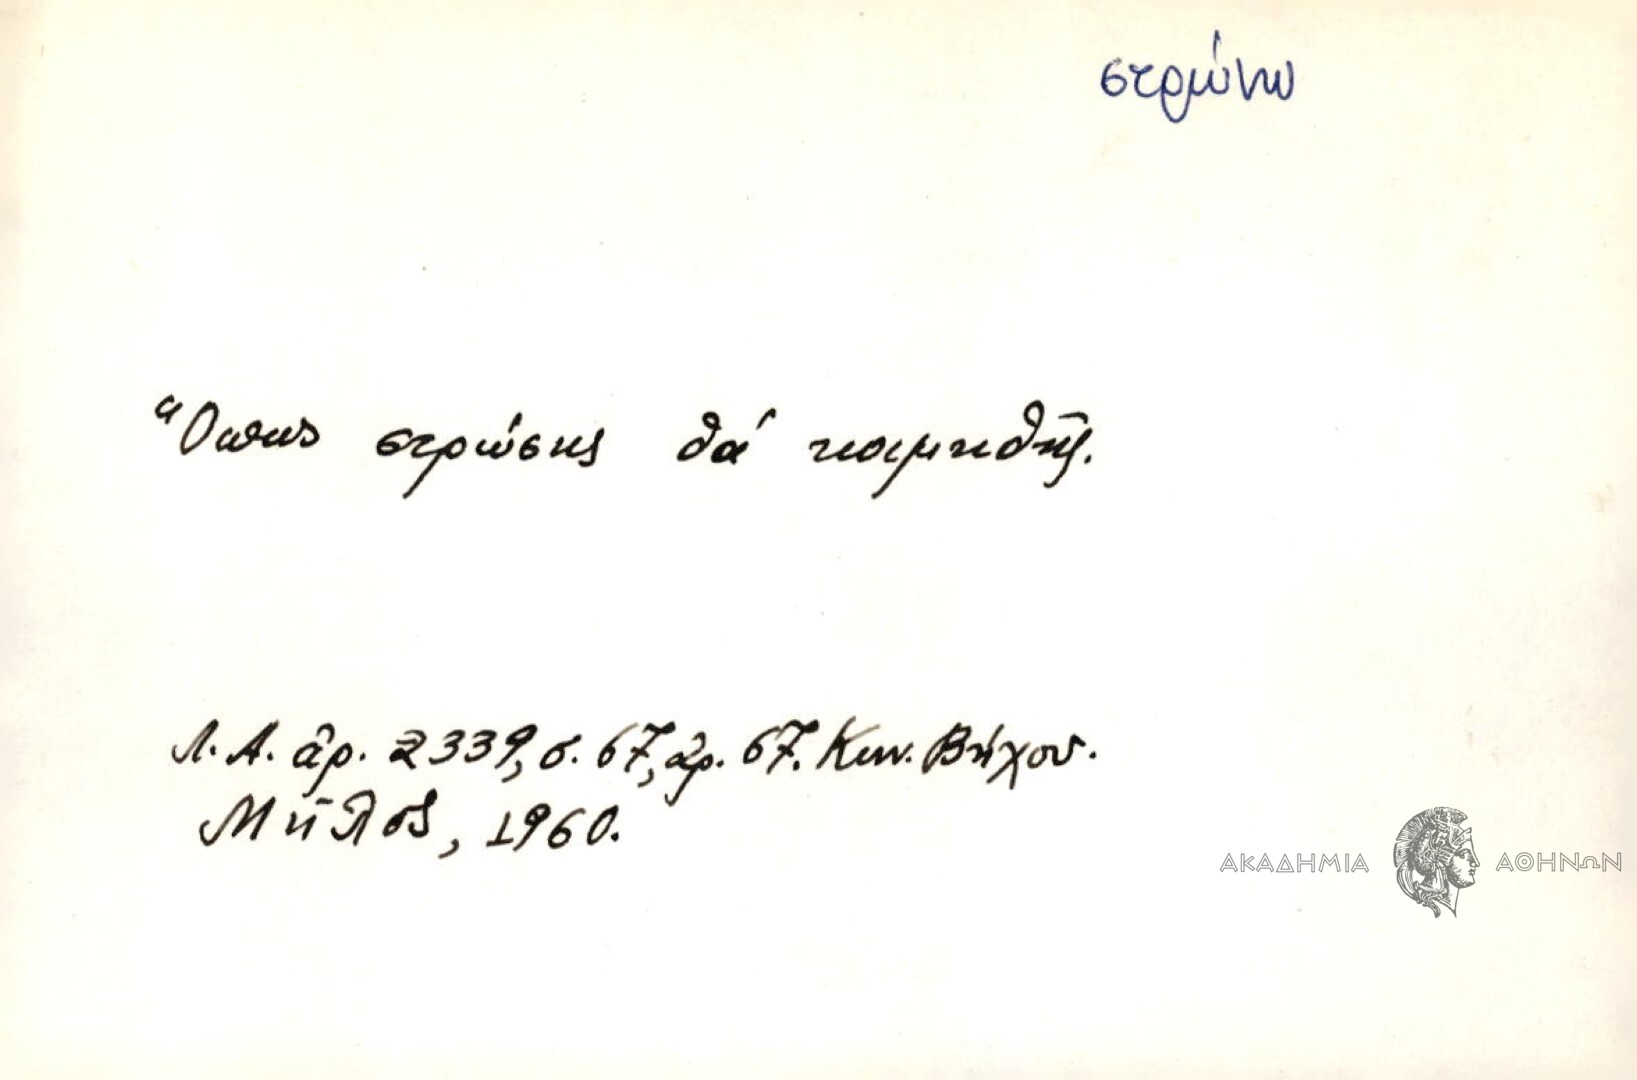 στρώνω
Ὅπως στρώσης θὰ κοιμηθῆς.
Λ.Α. ἀρ. 2339, σ. 67, ἀρ. 67. Κων. Βήχου.
Μῆλος, 1960.
ΑΚΑΔΗΜΙΑ ΑΘΗΝΩΝ